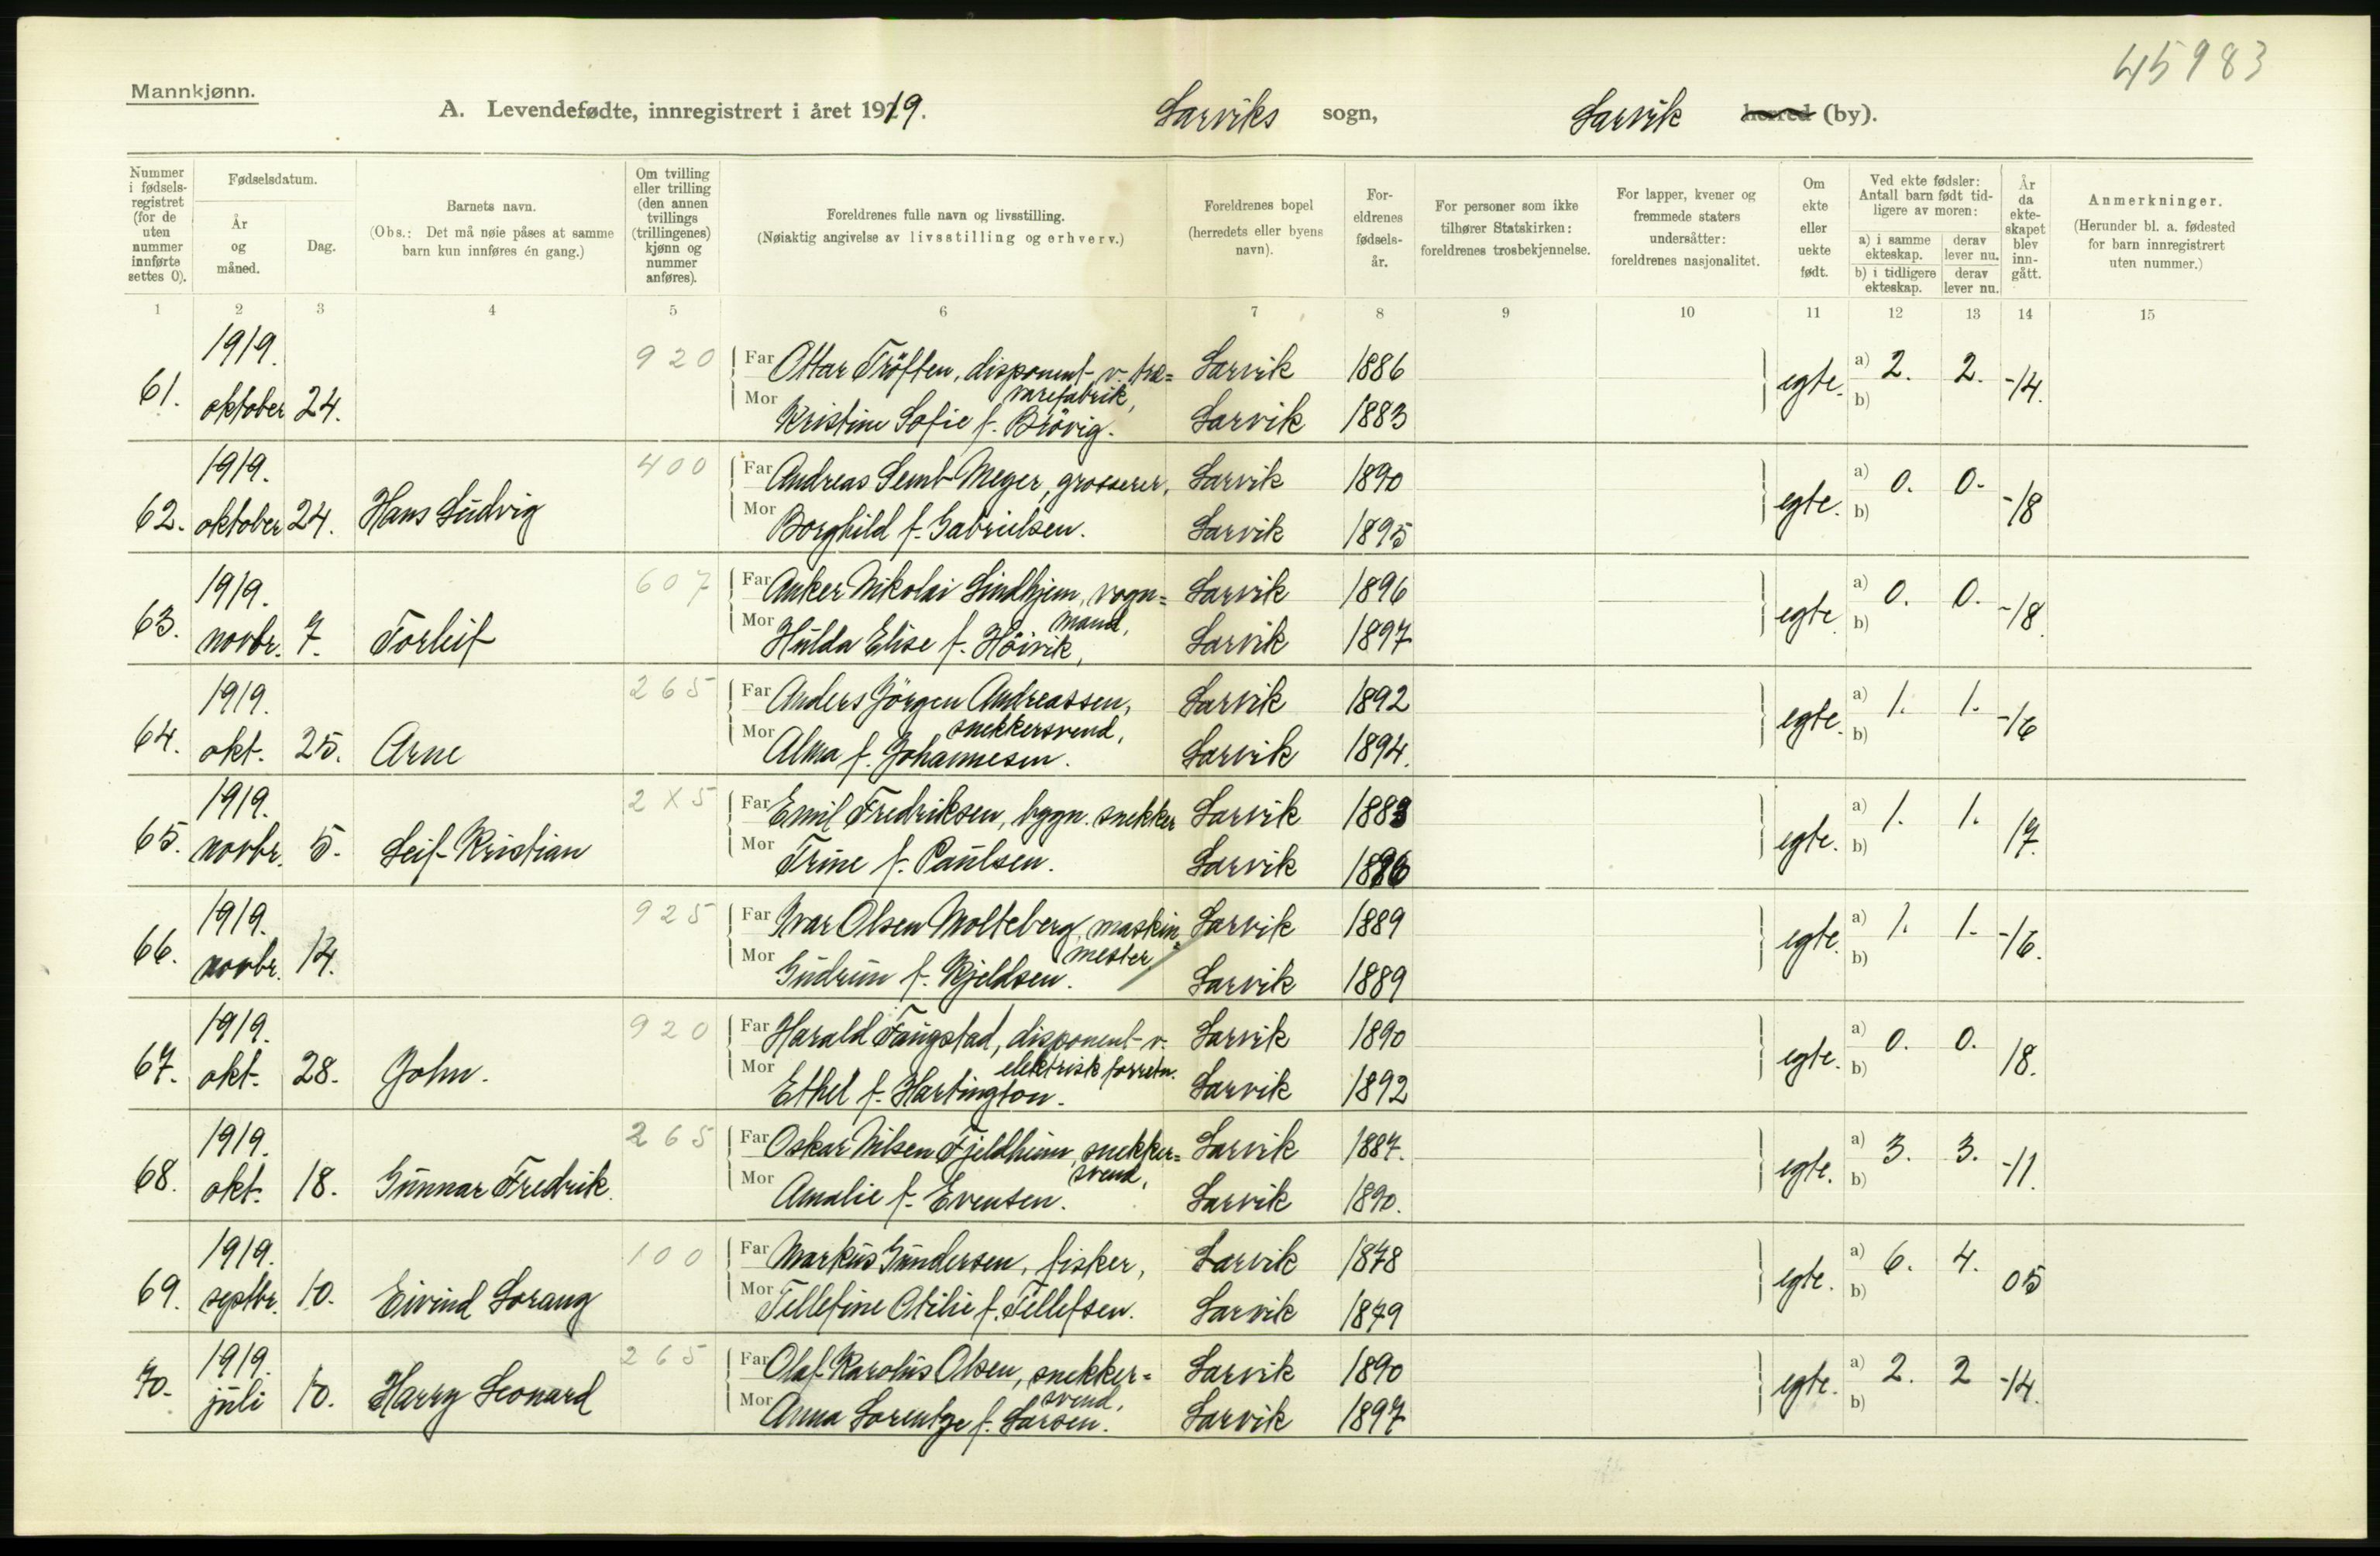 45983
Mannkjønn.
A. Levendefødte, innregistrert i året 1919. Larviks sogn, Larvik herred (by).
Nummer i fødselsregistret (for de uten nummer innførte settes 0).
Fødselsdatum.
År og måned.
Dag.
Barnets navn.
(Obs.: Det må nøie påses at samme barn kun innføres én gang.)
Om tvilling eller trilling (den annen tvillings (trillingenes) kjønn og nummer anføres).
Foreldrenes fulle navn og livsstilling.
(Nøiaktig angivelse av livsstilling og erhverv.)
Foreldrenes bopel (herredets eller byens navn).
Foreldrenes fødselsår.
For personer som ikke tilhører Statskirken: foreldrenes trosbekjennelse.
For lapper, kvener og fremmede staters undersåtter: foreldrenes nasjonalitet.
Om ekte eller uekte født.
Ved ekte fødsler: Antall barn født tidligere av moren:
a) i samme ekteskap. derav lever nu.
b) i tidligere ekteskap. derav lever nu.
År da ekteskapet blev inngått.
Anmerkninger.
(Herunder bl. a. fødested for barn innregistrert uten nummer.)
1 2 3 4 5 6 7 8 9 10 11 12 13 14 15
61. 1919. oktober 24. 920 Far Ottar Tröften, disponent v. træ= Larvik 1886 egte. a) 2. 2. -14.
varefabrik,
Mor Kristine Sofie f. Brövig. Larvik 1883 b)
62. 1919. oktober 24. Hans Ludvig 400 Far Andreas Semb Meyer, grosserer, Larvik 1890 egte. a) 0. 0. -18
Mor Borghild f. Gabrielsen. Larvik 1895 b)
63. 1919. novbr. 7. Torleif 607 Far Anker Nikolai Lindhjem, vogn= Larvik 1896 egte. a) 0. 0. -18.
mand,
Mor Hulda Elise f. Höivik, Larvik 1897 b)
64. 1919. okt. 25. Arne 265 Far Anders Jörgen Andreassen, Larvik 1892 egte. a) 1. 1. -16
snekkersvend,
Mor Alma f. Johannesen. Larvik 1894. b)
65. 1919. novbr. 5. Leif Kristian 2X5 Far Emil Fredriksen, bygn. snekker Larvik 1883 egte. a) 1. 1. 17.
Mor Trine f. Paulsen. Larvik b)
66. 1919. novbr. 14. 925 Far Ivar Olsen Molteberg, maskin= Larvik 1889 egte. a) 1. 1. -16.
mester
Mor Gudrun f. Kjeldsen. Larvik 1889 b)
67. 1919. okt. 28. John. 920 Far Harald Faugstad, disponent v. Larvik 1890 egte. a) 0. 0. 18.
elektrisk forretn.
Mor Ethel f. Hartington. Larvik 1892 b)
68. 1919. okt. 18. Gunnar Fredrik. 265 Far Oskar Nilsen Fjeldheim, snekker= Larvik 1887. egte. a) 3. 3. -11.
svend,
Mor Amalie f. Evensen. Larvik 1890. b)
69. 1919. septbr. 10. Eivind Lorang 100 Far Markus Gundersen, fisker, Larvik 1878 egte. a) 6. 4. 05
Mor Tellefine Otilie f. Tellefsen. Larvik 1879 b)
70. 1919. juli 10. Harry Leonard 265 Far Olaf Karolus Olsen, snekker= Larvik 1890 egte. a) 2. 2 -14.
svend,
Mor Anna Lorentze f. Larsen. Larvik 1897 b)